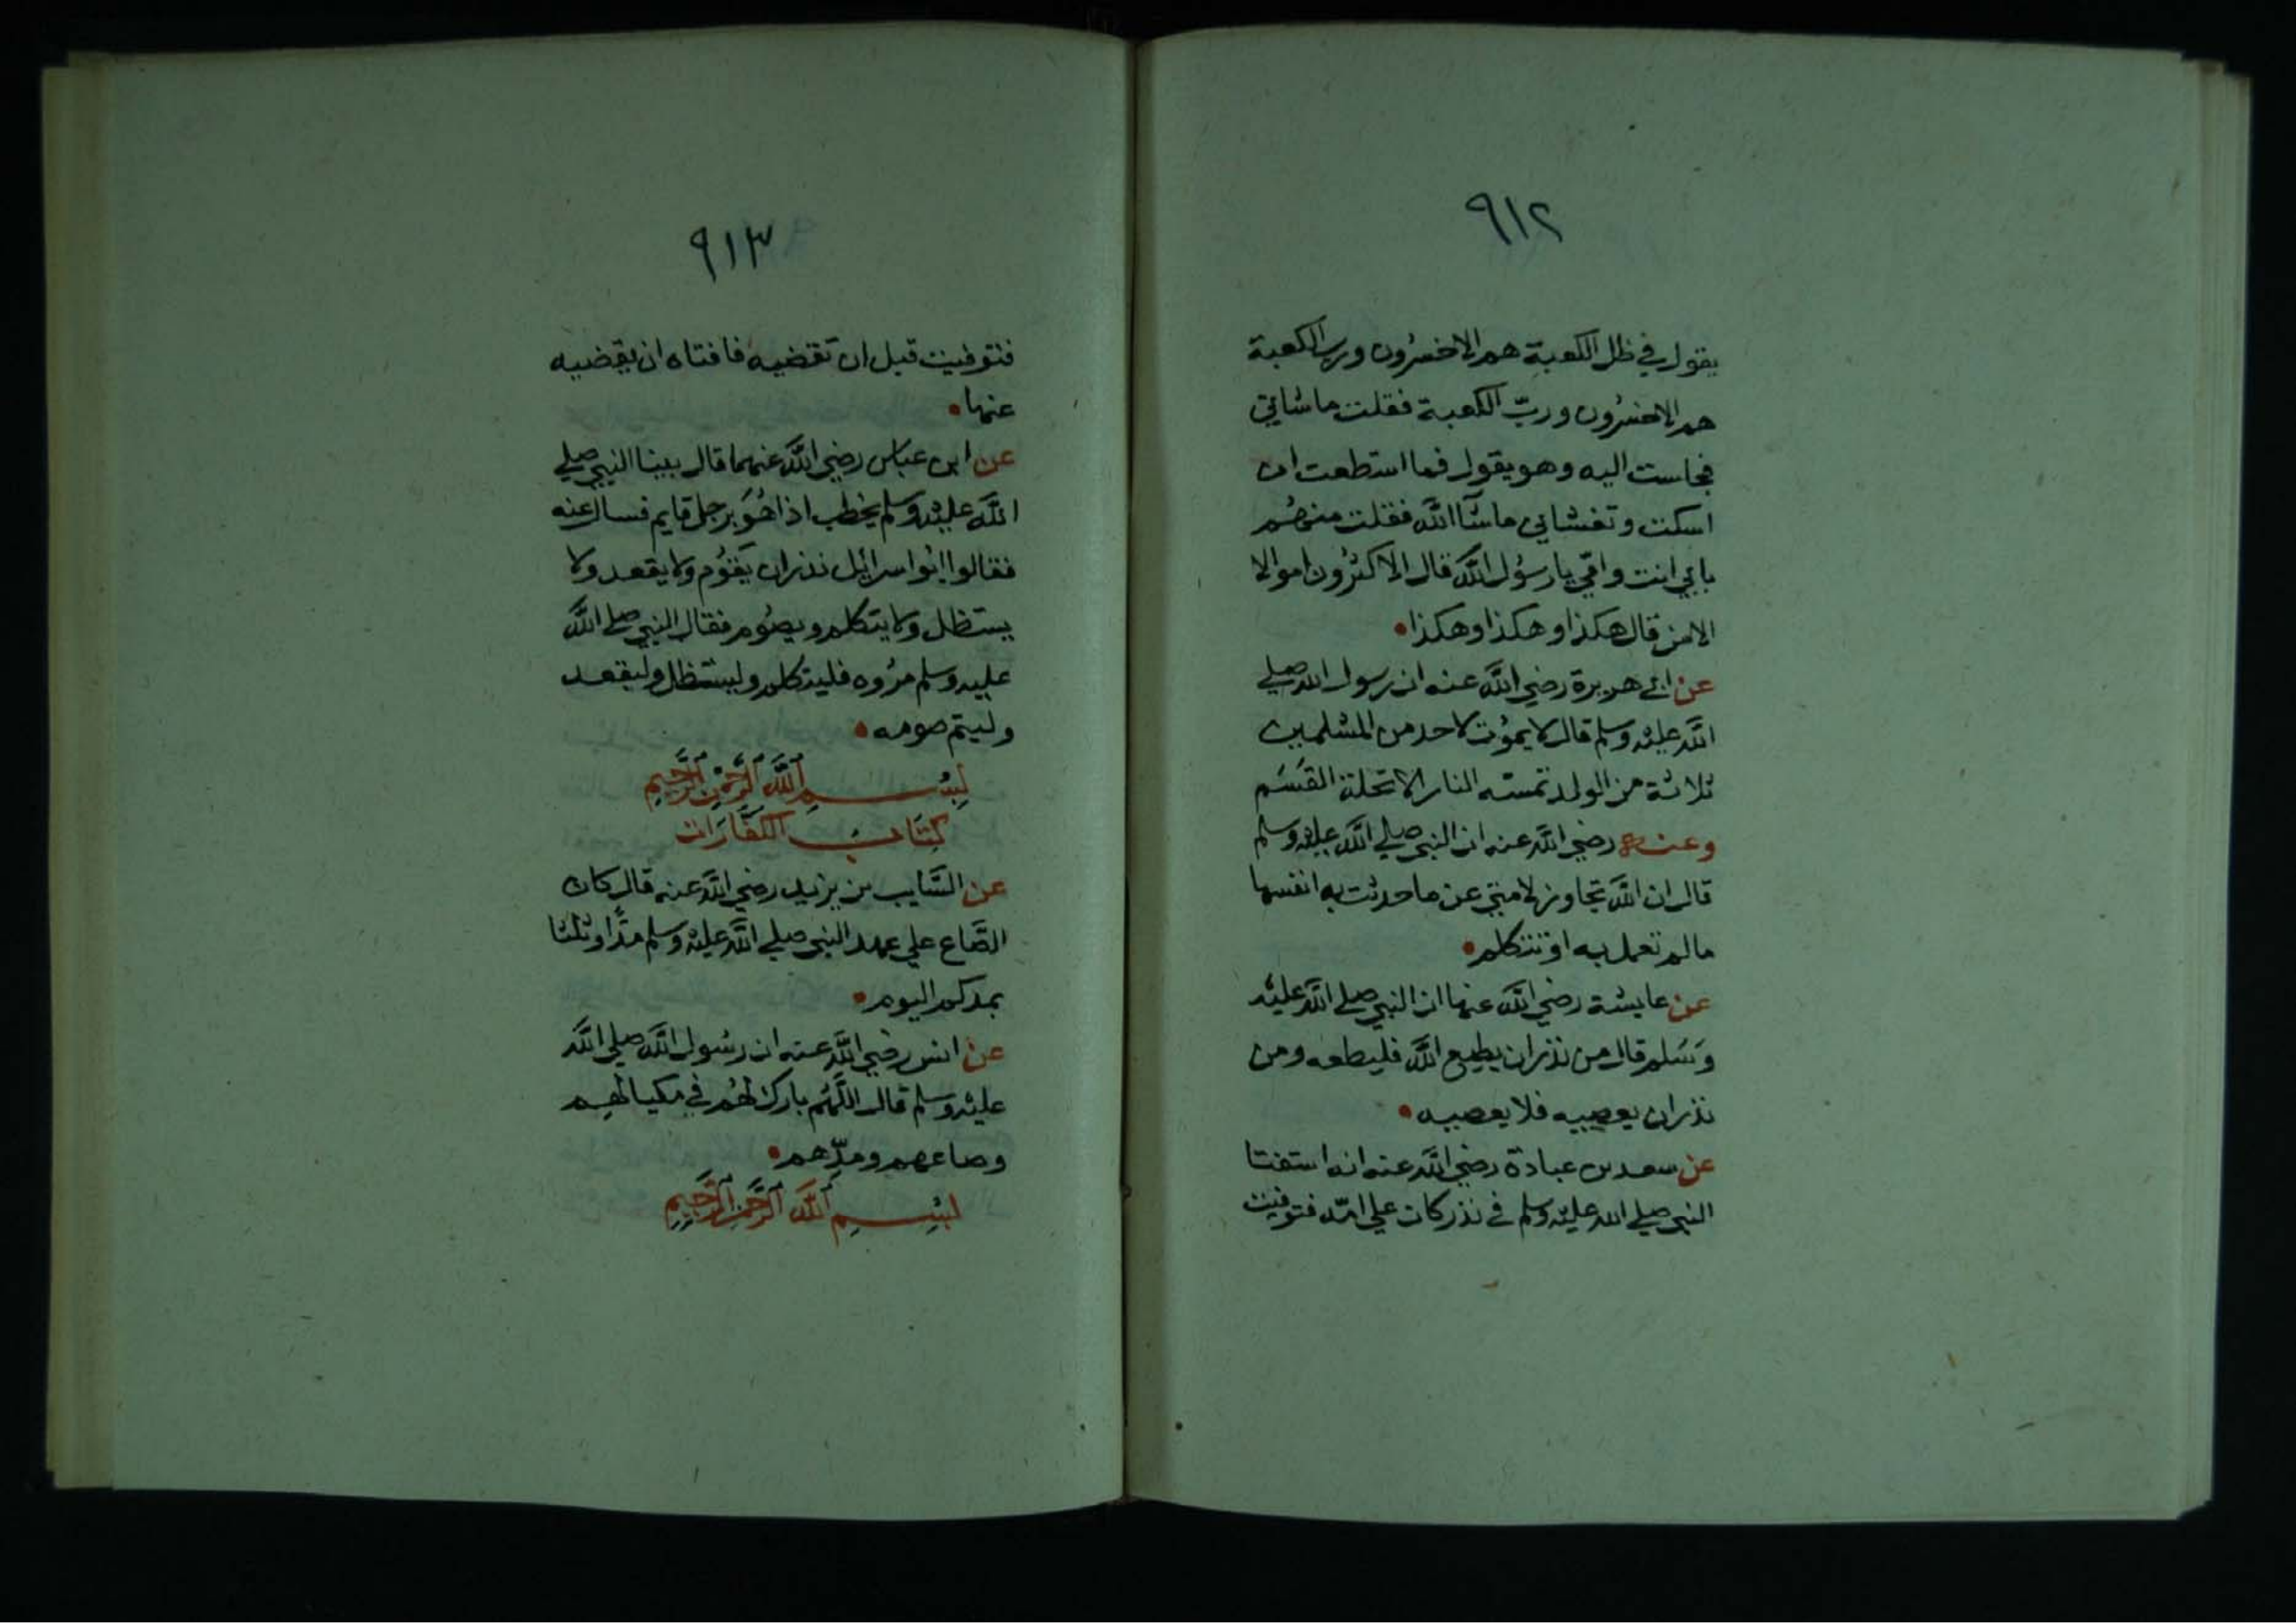 ٩١٢
يقول في ظل الكعبة هم الاخسرون ورب الكعبة
هم الاخسرون وربّ الكعبة فقلت ما شاني
فجلست اليه وهو يقول فما استطعت ان
اسكت وتغشاني ما شآ الله فقلت من هُم
بابي انت وامّي يا رسُول الله قال الاكثرُون اموالا
الا من قال هكذا وهكذا وهكذا
عن ابي هريرة رضي الله عنه ان رسول الله صلي
الله عليه وسلم قال لا يموُت لاحد من المسلمين
ثلاثة من الولد تمسّه النار الا تحلة القسَم
وعنه رضي الله عنه ان النبي صلي الله عليه وسلم
قال ان الله تجاوز لامتي عن ما حدثت به انفسها
ما لم تعمل به او تتكلم
عن عايشة رضي الله عنها ان النبي صلي الله عليه
وسَلم قال من نذر ان يطيع الله فليطعه ومن
نذر ان يعصيه فلا يعصيه
عن سعد بن عبادة رضي الله عنه انه استفتا
النبي صلي الله عليه وسلم في نذر كان علي امّه فتوفيت
٩١٣
فتوفيت قبل ان تقضيه فافتاه ان يقضيه
عنها
عن ابن عباس رضي الله عنهما قال بينا النبي صلي
الله عليه وسلم يخطب اذا هُوَ برجل قايم فسال عنه
فقالوا ابوا اسرائل نذر ان يَقوُم ولا يقعد ولا
يستظل ولا يتكلم ويصُوم فقال النبي صلي الله
عليه وسلم مرُوه فليتكلم وليستظل وليقعد
وليتم صومه
بِسْمِ اللَّه الرَّحْمٰنِ الرَّحِيمِ
كِتَابُ الكَفَّارَات
عن السَّايب بن يزيد رضي الله عنه قال كان
الصَّاع علي عهد النبي صلي الله عليه وسلم مدًّا وثلثا
بمدكم اليوم
عن انس رضي الله عنه ان رسُول الله صلي الله
عليه وسلم قال اللَّهُم بارك لهُم في مكيالهِم
وصاعهم ومدِّهم
بِسْمِ اللَّه الرَّحْمٰنِ الرَّحِيمِ